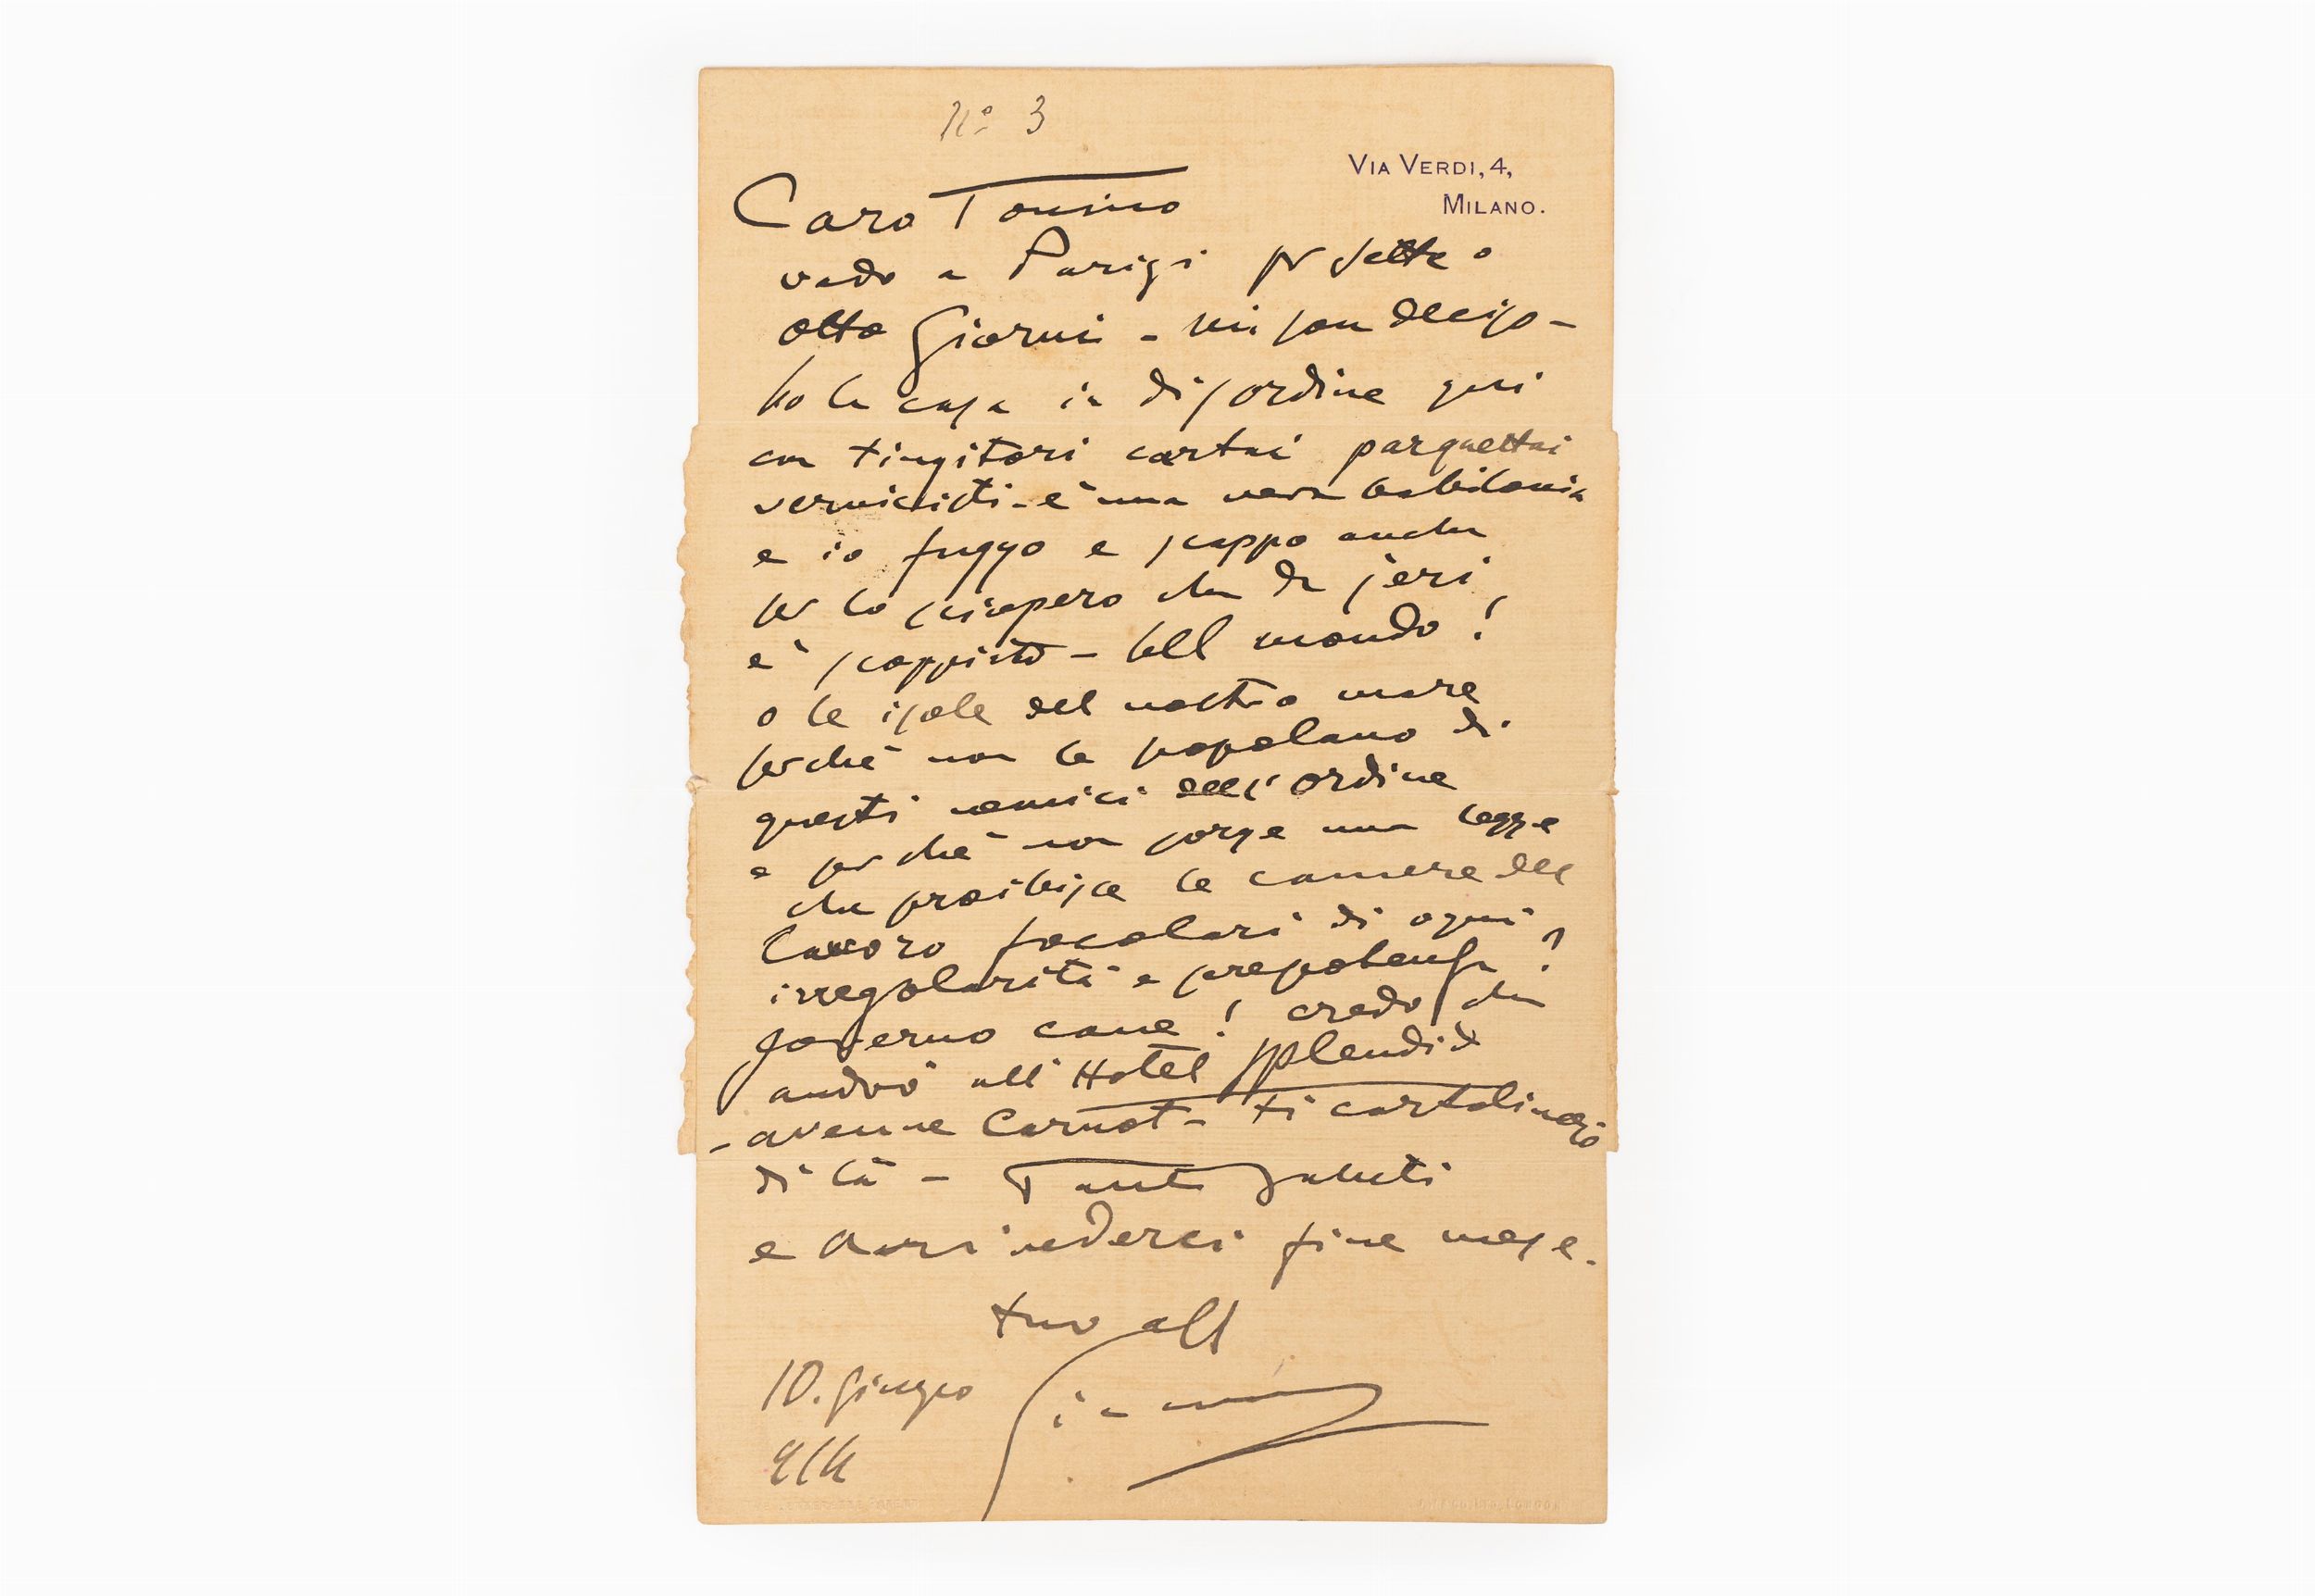 No 3
VIA VERDI, 4,
MILANO.
Caro Tonino
vado a Parigi per sette o
otto Giorni - mi son deciso -
ho la casa in disordine qui
con tingitori cartai parquettai
vernicisti - è una vera babilonia
e io fuggo e scappo anche
per lo sciopero che da jeri
è scoppiato - bel mondo!
o le isole del nostro mare
perchè non le popolano di
questi nemici dell'ordine
e perchè non sorge una legge
che proibisce le camere del
lavoro focolari di ogni
irregolarità e prepotenza?
governo cane! credo che
andrò all'Hotel Splendid
- avenue Carnot - ti cartolinerò
di là - Tanti Saluti
e arrivederci fine mese.
tuo aff
10. giugno
914